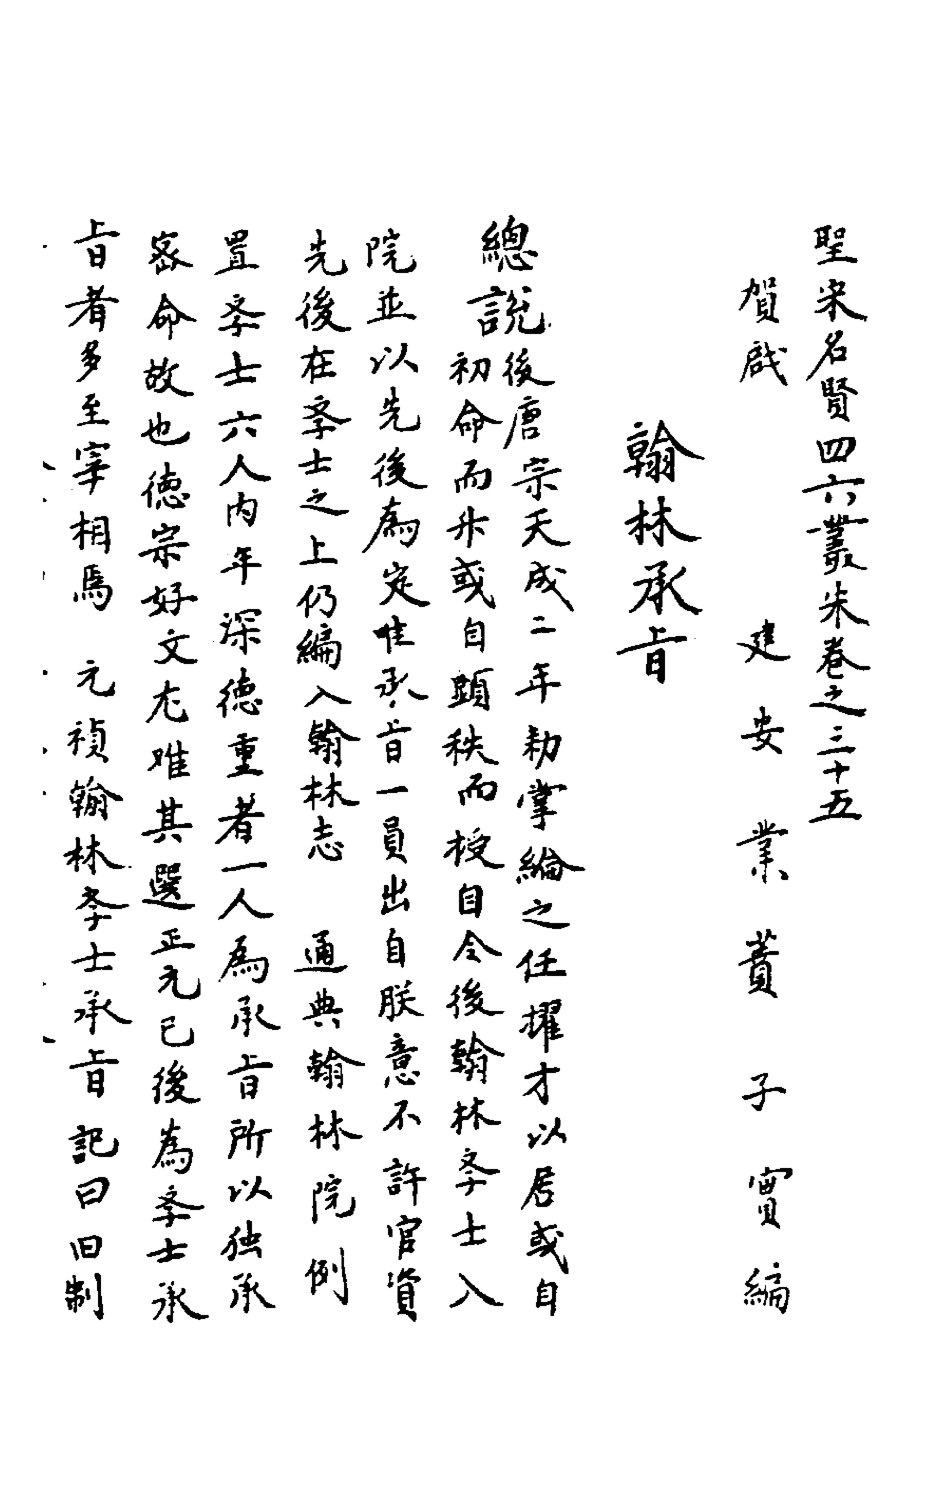 聖宋名賢四六叢朱卷之三十五
賀啟
建安業蕡子實編
翰林承旨
總說後唐宗天成二年勑掌綸之任擢才以居或自
初命而升或自顕秩而授自今後翰林孝士入
院並以先後為定惟承旨一員出自朕意不許官資
先後在孝士之上仍編入翰林志 通典翰林院例
置孝士六人内年深德重者一人為承旨所以独承
密命故也德宗好文尤难其選正元已後為孝士承
旨者多至宰相焉 元禎翰林孝士承旨記曰旧制